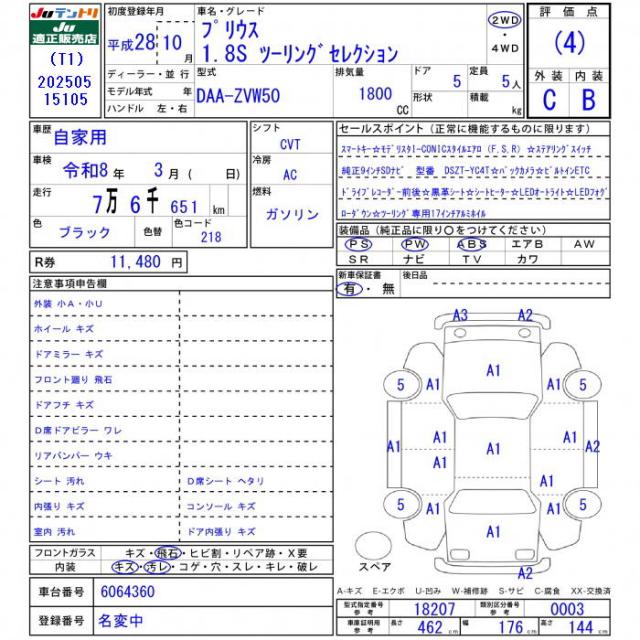 Juテントリ
Ju
適正販売店
(T1)
202505
15105
初度登録年月
平成28年10月
ディーラー・並行
モデル年式 年
ハンドル 左・右
車名・グレード
プリウス
1.8S ツーリングセレクション
2WD
・
4WD
型式
DAA-ZVW50
排気量
1800
CC
ドア
5
形状
定員
5人
積載
kg
評価点
(4)
外装 内装
C B
車歴
自家用
車検
令和8年 3月( 日)
走行
7万6千651km
色
ブラック
色替
色コード
218
シフト
CVT
冷房
AC
燃料
ガソリン
R券 11,480 円
セールスポイント(正常に機能するものに限ります)
スマートキー☆モデリスタI-CONICスタイルエアロ(F,S,R)☆ステアリングスイッチ
純正9インチSDナビ 型番 DSZT-YC4T☆バックカメラ☆ビルトインETC
ドライブレコーダー前後☆黒革シート☆シートヒーター☆LEDオートライト☆LEDフォグ
ローダウン☆ツーリング専用17インチアルミホイル
装備品(純正品に限り○をつけてください)
PS PW ABS エアB AW
SR ナビ TV カワ
新車保証書
有・無
後日品
注意事項申告欄
外装 小A・小U
ホイール キズ
ドアミラー キズ
フロント廻り 飛石
ドアフチ キズ
D席ドアピラー ワレ
リアバンパー ウキ
シート 汚れ D席シート ヘタリ
内張り キズ コンソール キズ
室内 汚れ ドア内張り キズ
フロントガラス キズ・飛石・ヒビ割・リペア跡・X要
内装 キズ・汚レ・コゲ・穴・スレ・キレ・破レ
車台番号 6064360
登録番号 名変中
A3 A2
5 A1 A1 A1 5
A1 A1 A1 A1 A2
A1
5 A1 A1 5
A1
A2
スペア
A-キズ E-エクボ U-凹み W-補修跡 S-サビ C-腐食 XX-交換済
型式指定番号 18207 類別区分番号 0003
車庫証明用参考 長さ 462cm 幅 176cm 高さ 144cm